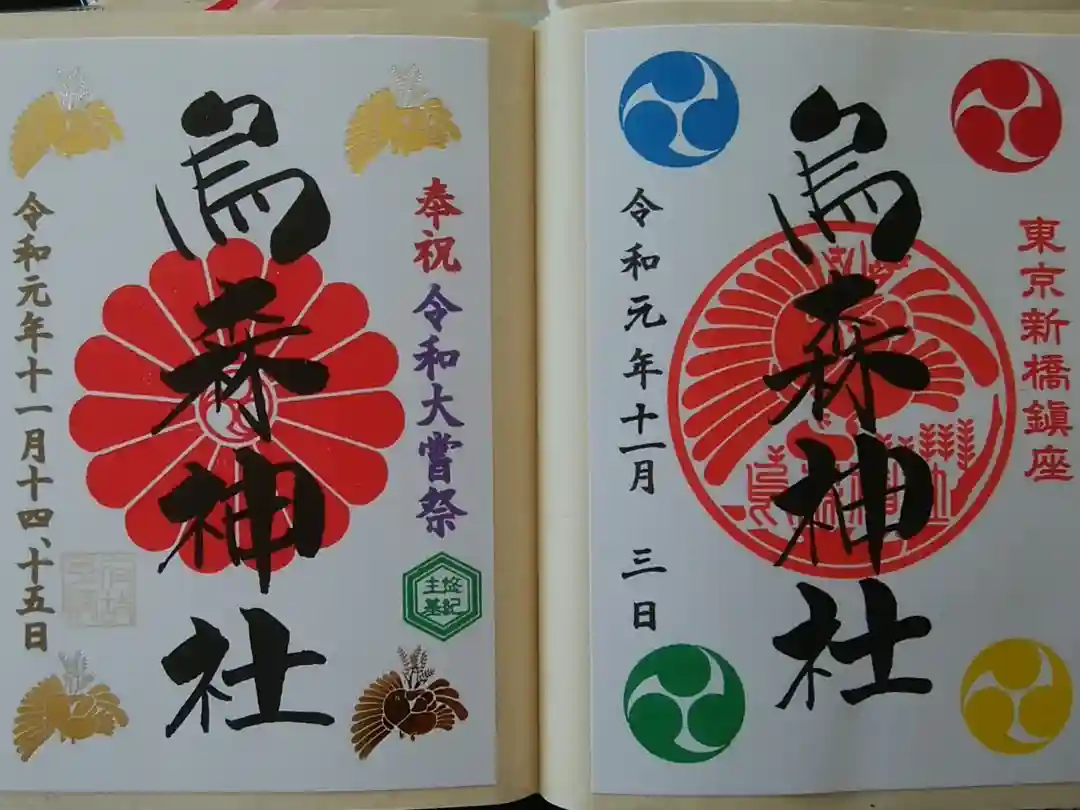 奉祝 令和大嘗祭
悠紀
主基
烏森神社
令和元年十一月十四、十五日
東京新橋鎮座
烏森神社
令和元年十一月 三日